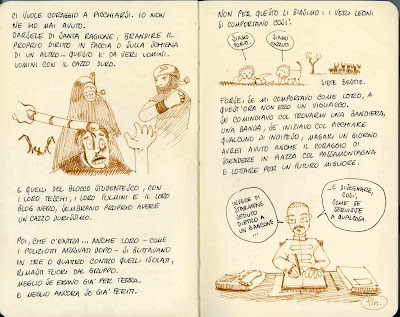 CI VUOLE CORAGGIO A PICCHIARSI. IO NON
NE HO MAI AVUTO.
DARSELE DI SANTA RAGIONE, BRANDIRE IL
PROPRIO DIRITTO IN FACCIA O SULLA SCHIENA
DI UN ALTRO... QUESTO È DA VERI UOMINI.
UOMINI CON IL CAZZO DURO.
E QUELLI DEL BLOCCO STUDENTESCO, CON
I LORO TESCHI, I LORO FULMINI E IL LORO
BLOG NERO, SEMBRANO PROPRIO AVERE
UN CAZZO DURISSIMO.
POI, CHE C'ENTRA... ANCHE LORO - COME
I POLIZIOTTI ARRIVATI DOPO - SI BUTTAVANO
IN TRE O QUATTRO CONTRO QUELLI ISOLATI,
RIMASTI FUORI DAL GRUPPO.
MEGLIO SE ERANO GIA' PER TERRA.
E MEGLIO ANCORA SE GIA' FERITI.
NON PER QUESTO LI BIASIMO: I VERI LEONI
SI COMPORTANO COSI'.
SIAMO
FORTI.
SIAMO
CAZZUTI.
SIETE BESTIE.
FORSE, SE MI COMPORTAVO COME LORO, A
QUEST'ORA NON ERO UN VIGLIACCO.
SE COMINCIAVO COL TROVARMI UNA BANDIERA,
UNA BANDA, SE INIZIAVO COL PICCHIARE
QUALCUNO DI INDIFESO, MAGARI UN GIORNO
AVREI AVUTO ANCHE IL CORAGGIO DI
SCENDERE IN PIAZZA COL PASSAMONTAGNA
E LOTTARE PER UN FUTURO MIGLIORE.
INVECE DI
STARMENE
SEDUTO
DIETRO A
UN BANCONE
...
...E DISEGNARE,
COSI',
COME SE
SERVISSE
A QUALCOSA.
fin.